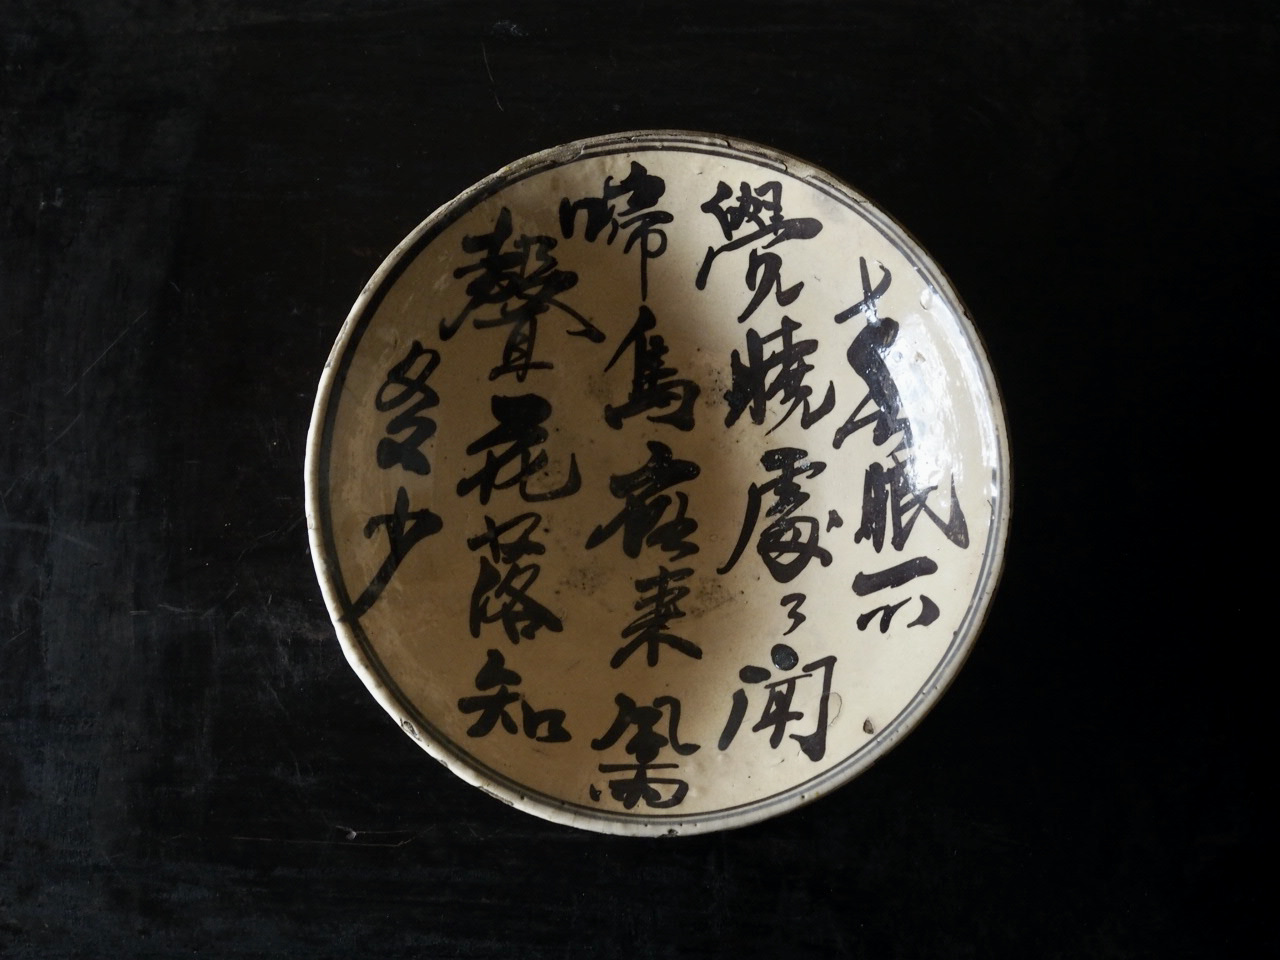 春眠不
覺曉處々聞
啼鳥夜來風雨
聲花落知
多少